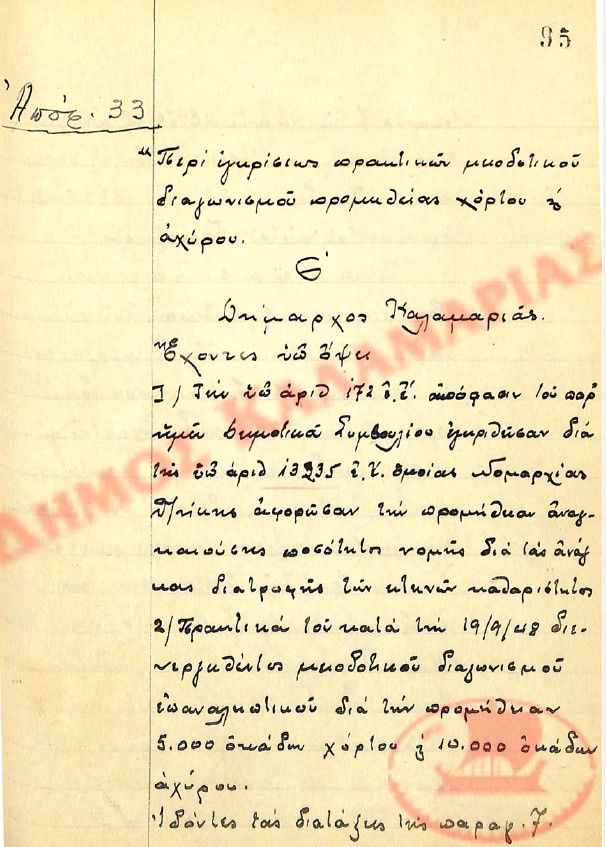 95
Ἀπόφ. 33
"Περί ἐγκρίσεως πρακτικῶν μειοδοτικοῦ
διαγωνισμοῦ προμηθείας χόρτου &
ἀχύρου.
Ὁ
Δήμαρχος Καλαμαριᾶς.
Ἔχοντες ὑπ' ὄψει
1/ Τήν ὑπ' ἀριθ 172 ἀπόφασιν τοῦ παρ'
ἡμῖν Δημοτικοῦ Συμβουλίου ἐγκριθεῖσαν διά
τῆς ὑπ' ἀριθ 13235 ὁμοίας Νομαρχίας
Θ/νίκης ἀφορῶσαν τήν προμήθειαν ἀναγ-
καιούσης ποσότητος νομῆς διά τάς ἀνάγ-
κας διατροφῆς τῶν κτηνῶν καθαριότητος
2/ Πρακτικά τοῦ κατά τήν 19/9/48 διε-
νεργηθέντος μειοδοτικοῦ διαγωνισμοῦ
ἐπαναληπτικοῦ διά τήν προμήθειαν
5.000 ὀκάδων χόρτου & 10.000 ὀκάδων
ἀχύρου.
Ἰδόντες τάς διατάξεις τῆς παραγ. 7.
ΔΗΜΟΣ ΚΑΛΑΜΑΡΙΑΣ